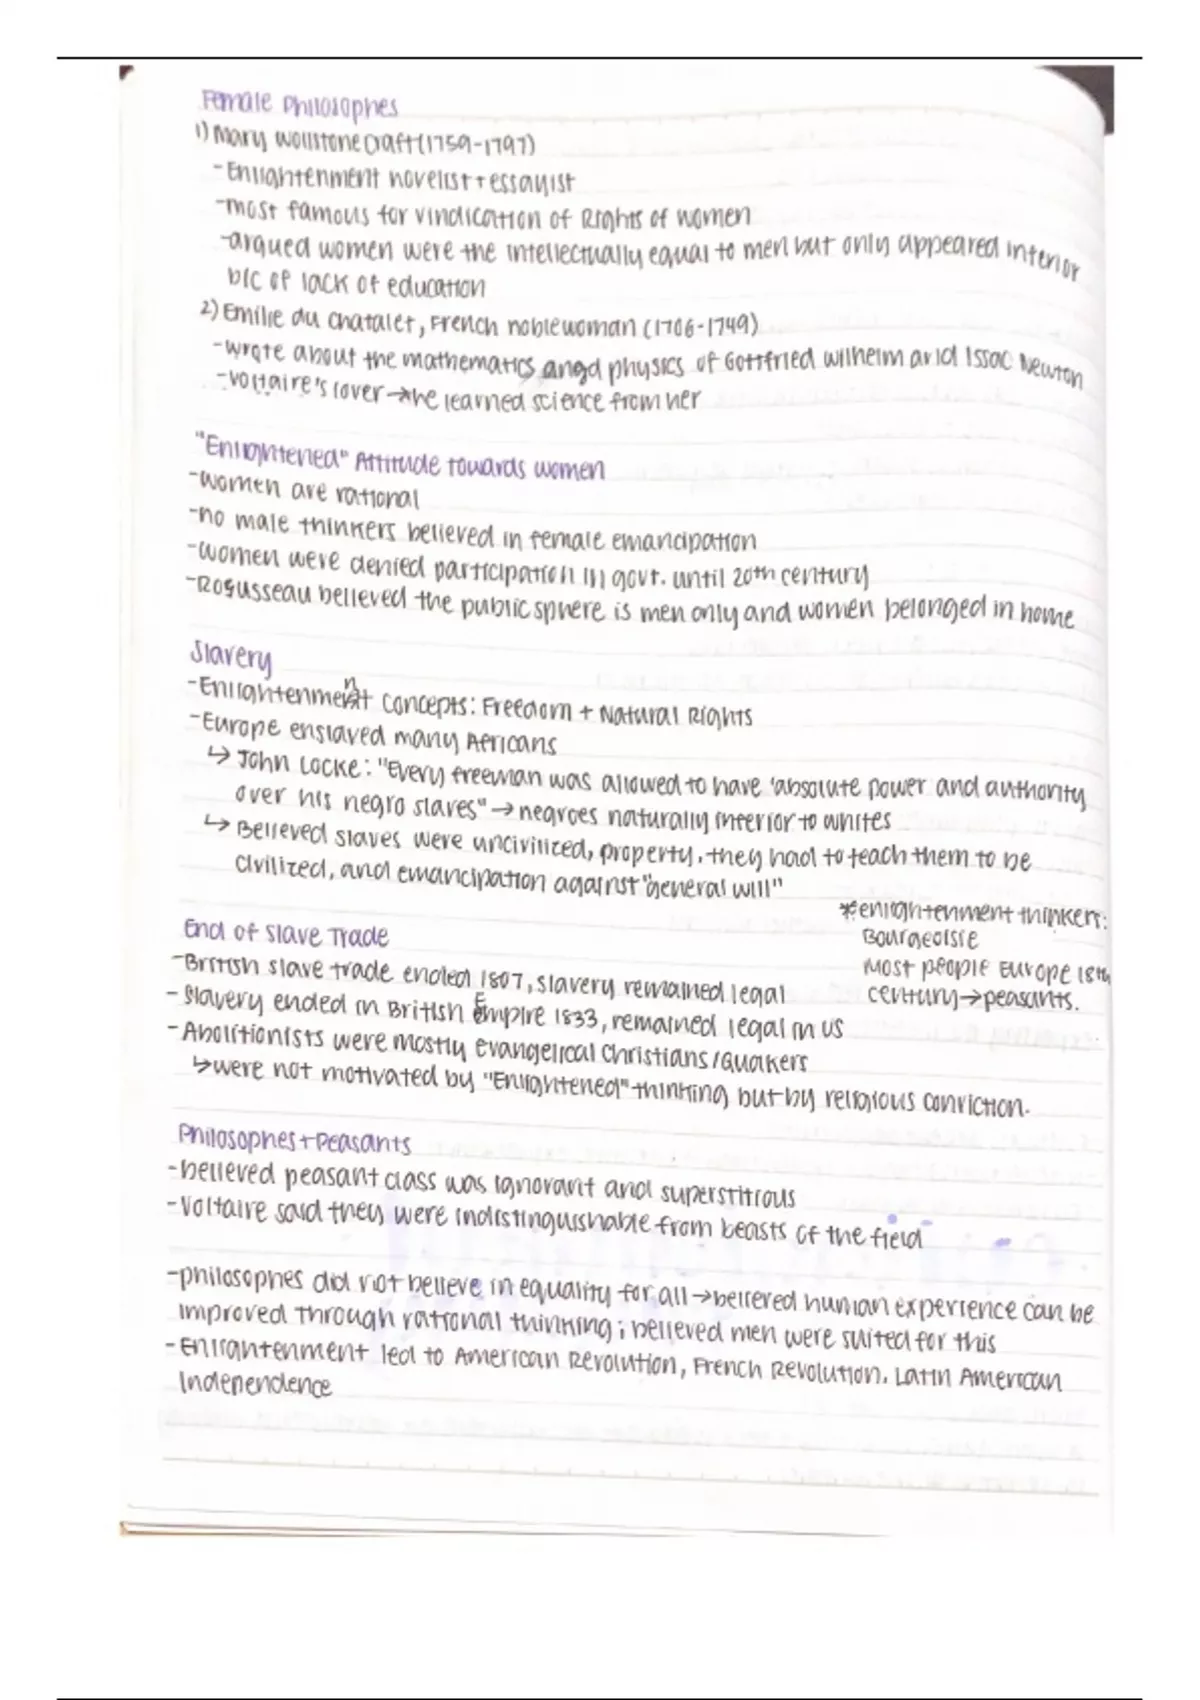 Female Philosophes
1) Mary Wollstonecraft (1759-1797)
- Enlightenment novelist + essayist
- most famous for vindication of Rights of women
- argued women were the intellectually equal to men but only appeared inferior
b/c of lack of education
2) Emilie du chatalet, French noblewoman (1706-1749)
- wrote about the mathematics angd physics of Gottfried wilhelm and Issac Newton
- voltaire's lover → he learned science from her
"Enlightened" Attitude towards women
- women are rational
- no male thinkers believed in female emancipation
- women were denied participation in govt. until 20th century
- Rousseau believed the public sphere is men only and women belonged in home
Slavery
- Enlightenment concepts: Freedom + Natural Rights
- Europe enslaved many Africans
↳ John Locke: "Every freeman was allowed to have 'absolute power and authority
over his negro slaves" → negroes naturally inferior to whites
↳ Believed slaves were uncivilized, property, they had to teach them to be
civilized, and emancipation against "general will"
*enlightenment thinkers:
Bourgeoisie
Most people Europe 18th
century → peasants.
End of Slave Trade
- British slave trade ended 1807, slavery remained legal
- Slavery ended in British Empire 1833, remained legal in US
- Abolitionists were mostly evangelical Christians/Quakers
↳ were not motivated by "Enlightened" thinking but by religious conviction.
Philosophes + Peasants
- believed peasant class was ignorant and superstitious
- Voltaire said they were indistinguishable from beasts of the field
- philosophes did not believe in equality for all → believed human experience can be
improved through rational thinking; believed men were suited for this
- Enlightenment led to American Revolution, French Revolution, Latin American
Independence